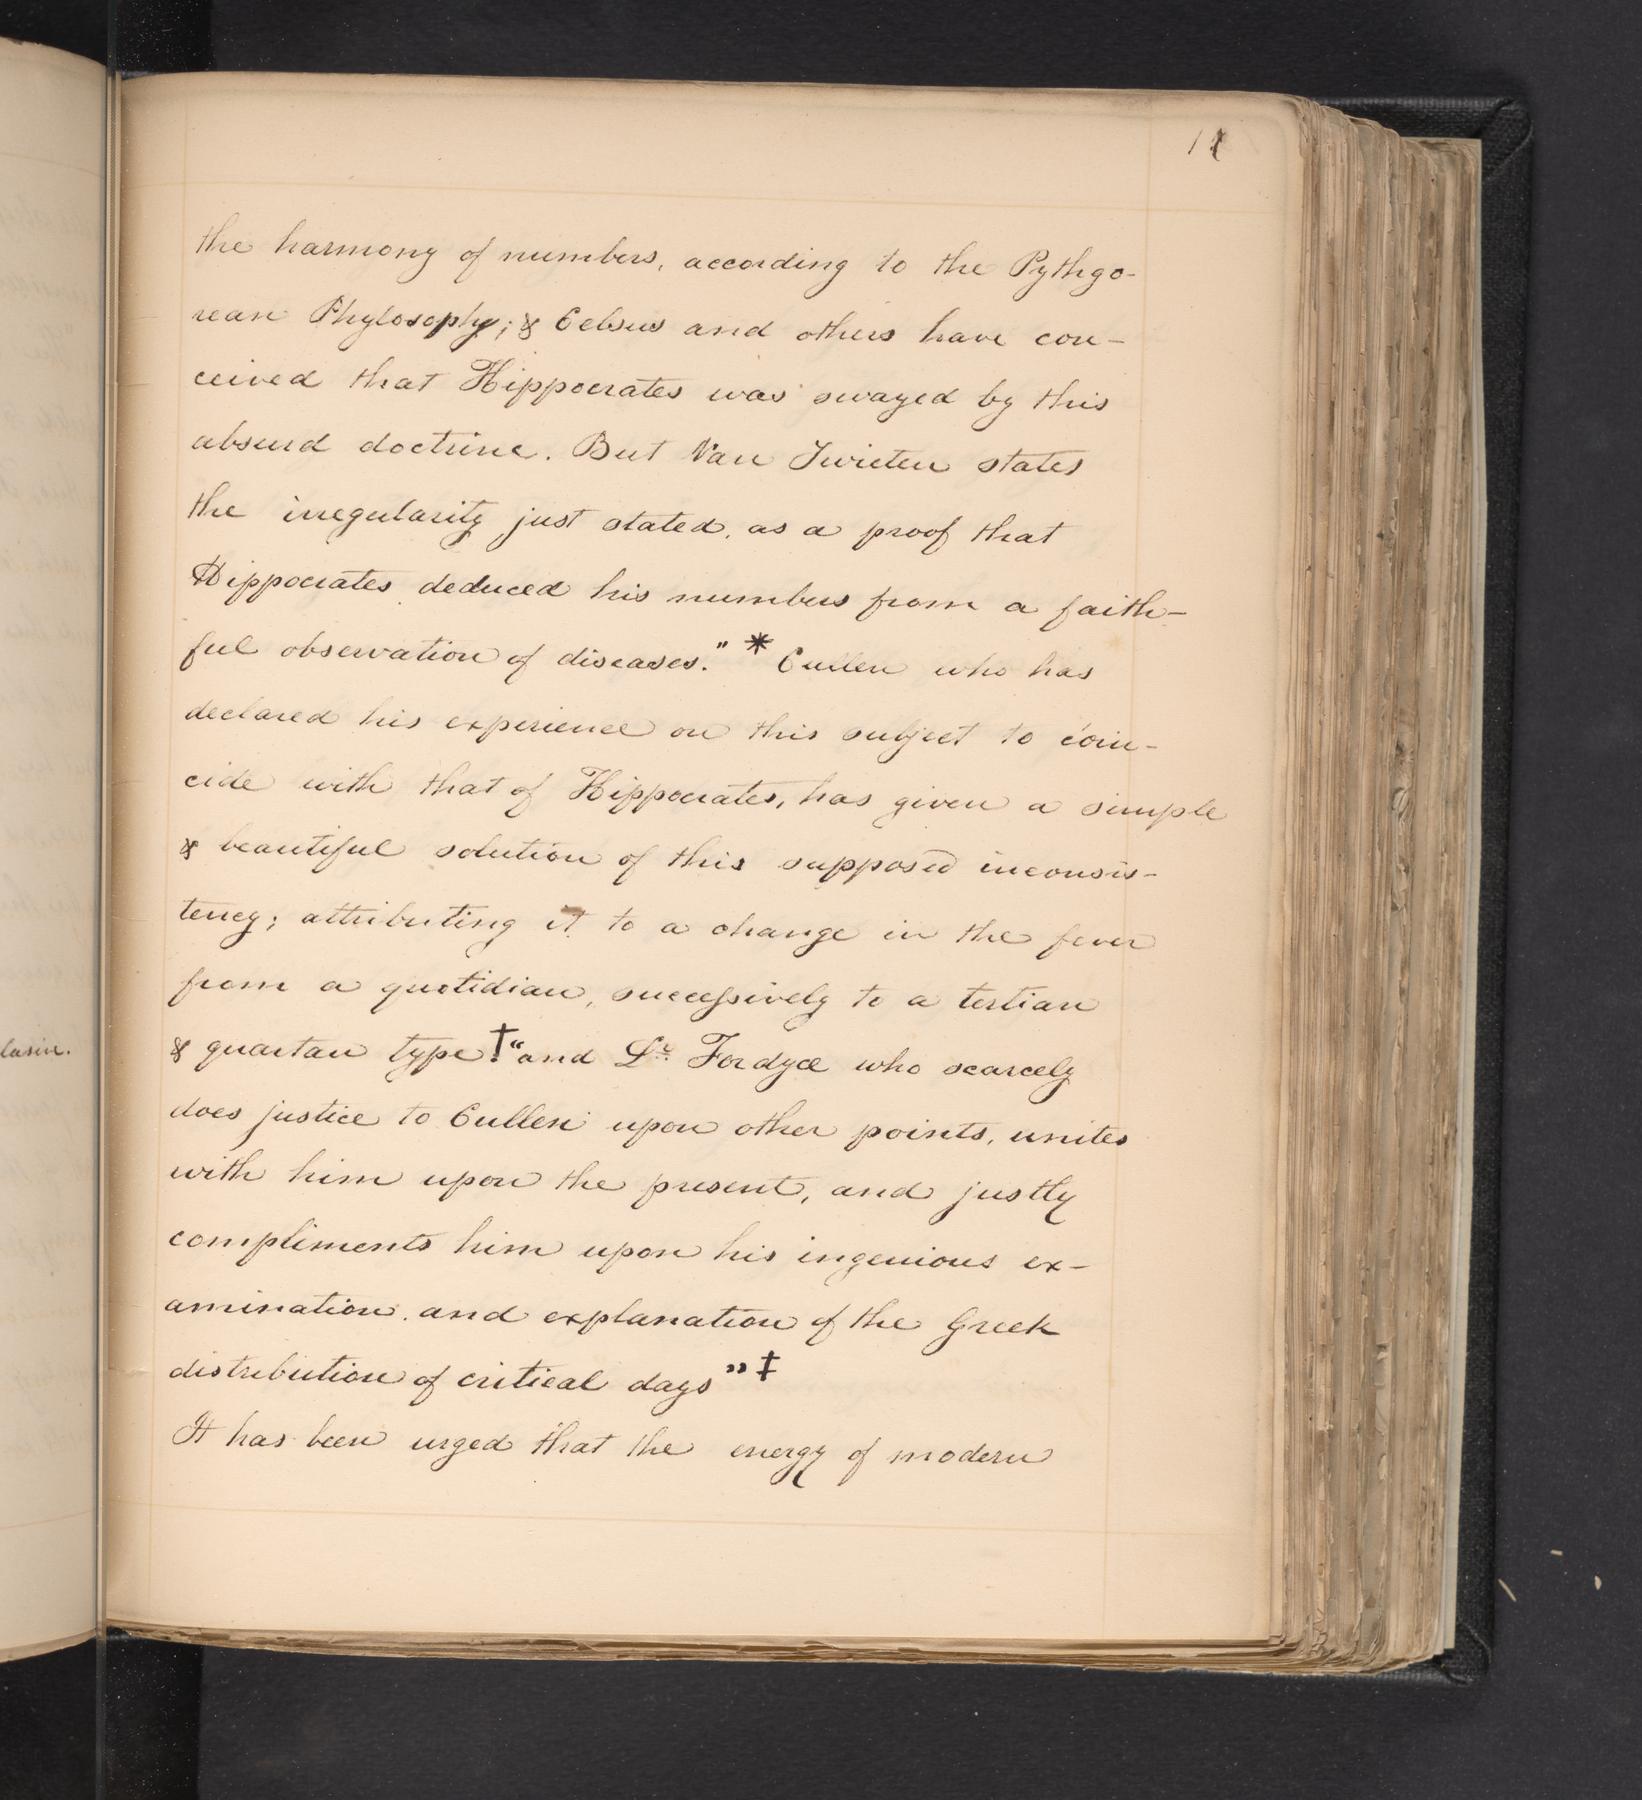 the harmony of numbers, according to the Pythgo-
rean Phylosophy; & Celsus and others have con-
ceived that Hippocrates was swayed by this
absurd doctrine. But Van Swieten states
the irregularity just stated, as a proof that
Hippocrates deduced his numbers from a faith-
ful observation of diseases." * Cullen who has
declared his experience on this subject to coin-
cide with that of Hippocrates, has given a simple
& beautiful solution of this supposed inconsis-
tency; attributing it to a change in the fever
from a quotidian, successively to a tertian
& quartan type.† "and Dr. Fordyce who scarcely
does justice to Cullen upon other points, unites
with him upon the present, and justly
compliments him upon his ingenious ex-
amination. and explanation of the Greek
distribution of critical days" ‡
It has been urged that the energy of modern